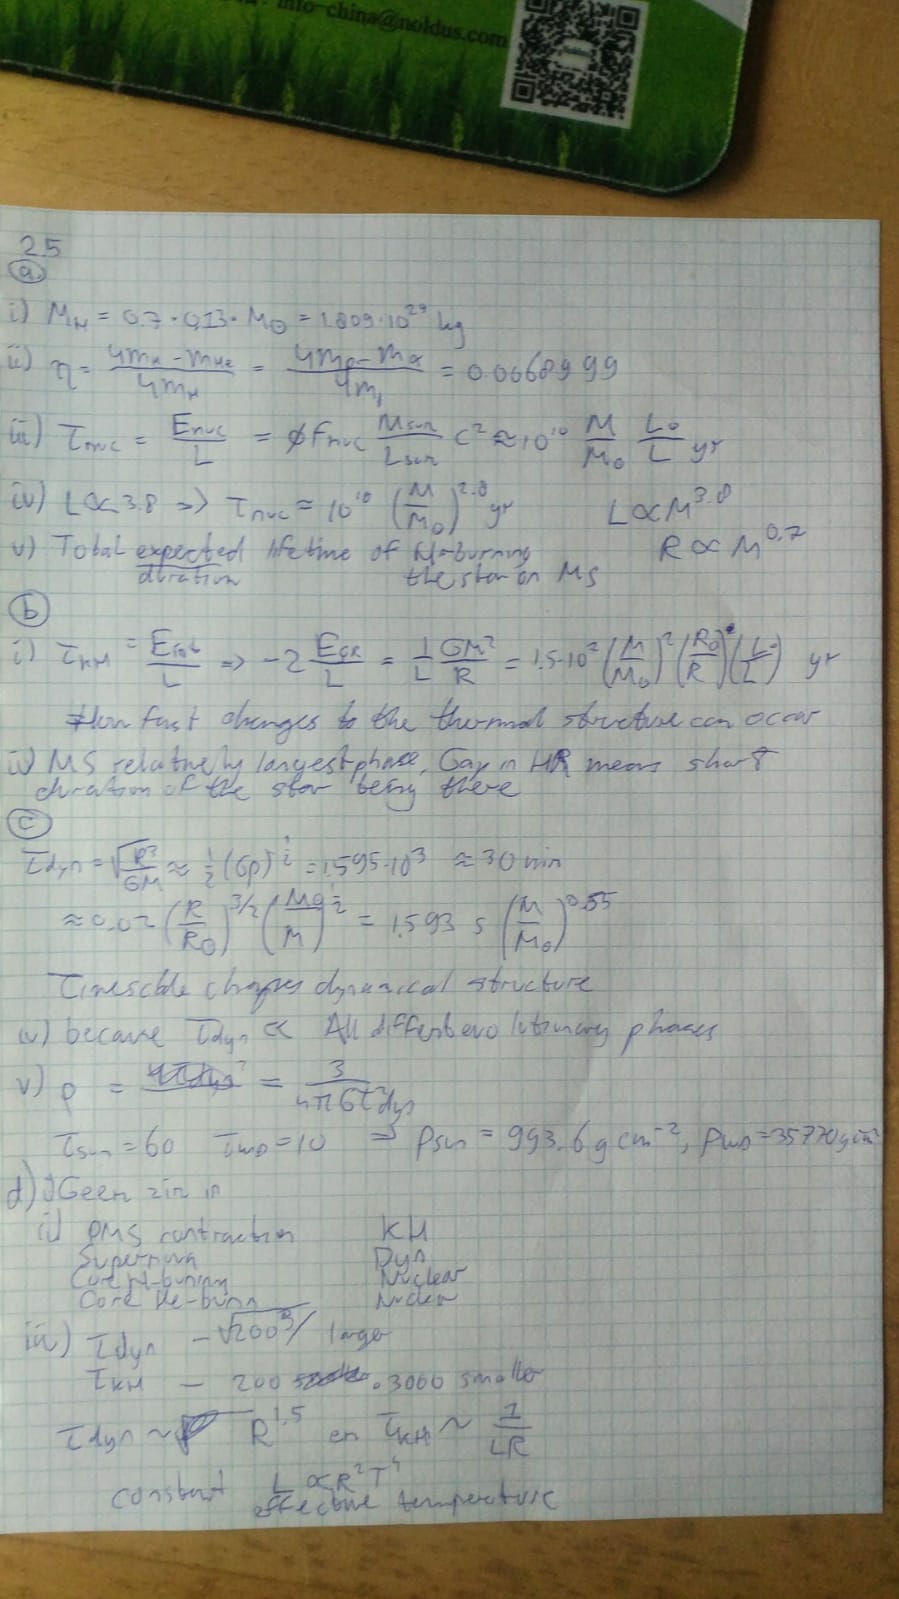 info-china@noldus.com
2.5
a.
i) M_H = 0.7 · 0,13 · M_⊙ = 1.809·10^29 kg
ii) η = (4m_H - m_He)/(4m_H) = (4m_p - m_α)/(4m_p) = 0.0068999
iii) τ_nuc = E_nuc/L = φ f_nuc (M_sun/L_sun) c^2 ≈ 10^10 (M/M_⊙) (L_⊙/L) yr
iv) L ∝ 3.8 => τ_nuc ≈ 10^10 (M/M_⊙)^2.8 yr L ∝ M^3.8
R ∝ M^0.7
v) Total expected lifetime of H-burning
duration the star on MS
b
i) τ_KH = E_tot/L => -2 E_GR/L = (1/L) (GM^2/R) = 1.5·10^2 (M/M_⊙)^2 (R_⊙/R) (L_⊙/L) yr
How fast changes to the thermal structure can occur
ii) MS relatively largest phase, Gap in HR means short
duration of the star being there
c
τ_dyn = √(R^3/GM) ≈ 1/2 (Gρ)^1/2 = 1.595·10^3 ≈ 30 min
≈ 0.02 (R/R_⊙)^3/2 (M_⊙/M)^1/2 = 1.593 s (M/M_⊙)^0.55
Timescale changes dynamical structure
iv) because τ_dyn ∝ All different evolutionary phases
v) ρ = = 3/(4πGτ^2_dyn)
τ_sun = 60 τ_WD = 10 => ρ_sun = 993.6 g cm^-2, ρ_WD = 35770 g cm
d) i) Geen zin in
ii) PMS contraction KH
Supernova Dyn
Core H-burning Nuclear
Core He-burn Nuclear
iii) τ_dyn - √200^3 / larger
τ_KH - 200 · 3000 smaller
τ_dyn ~ R^1.5 en τ_KH ~ 1/LR
constant L ∝ R^2 T^4
effective temperature